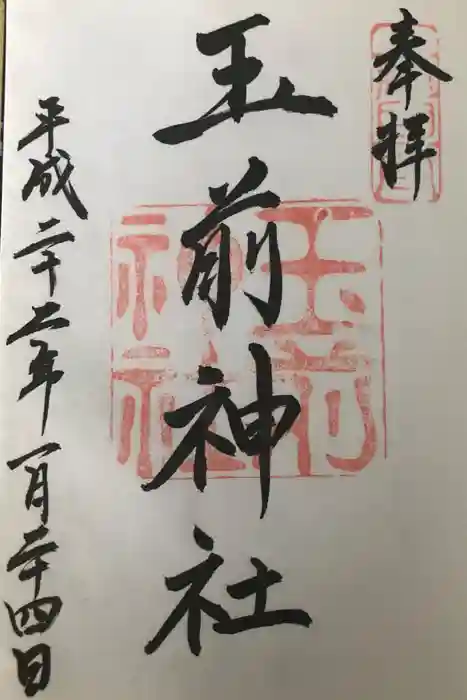 奉拝
玉前神社
平成二十二年一月二十四日
玉前
神社